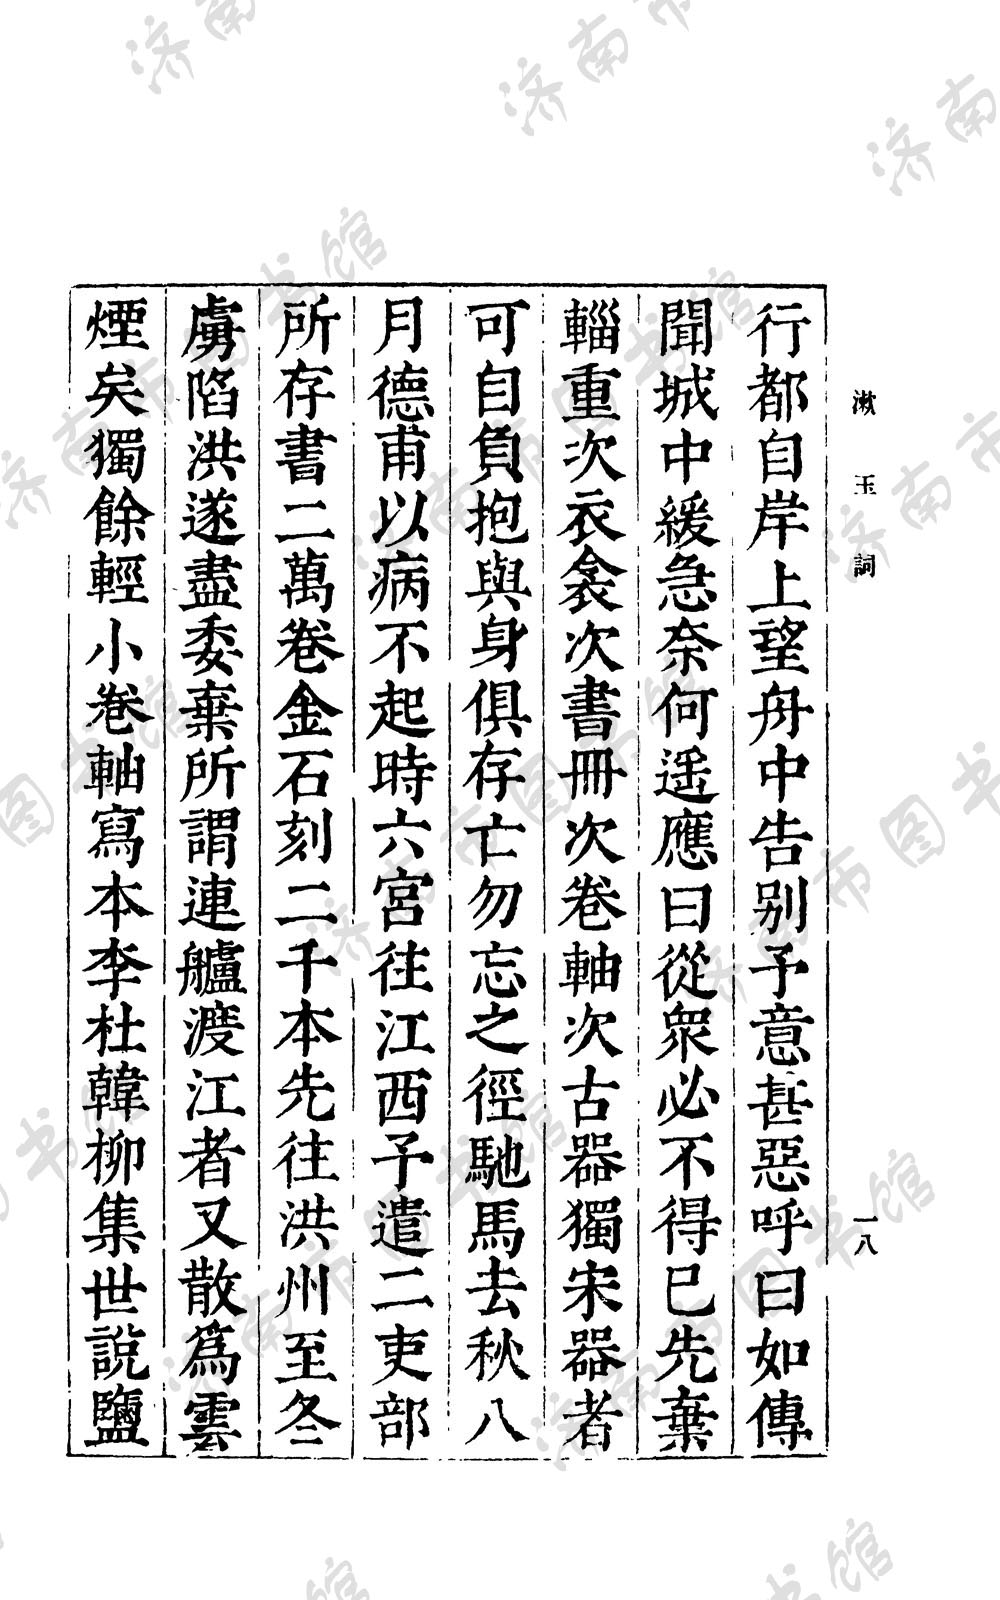 漱玉詞
一八
行都自岸上望舟中告别予意甚惡呼曰如傳
聞城中緩急奈何遥應曰從衆必不得已先棄
輜重次衣衾次書冊次卷軸次古器獨宋器者
可自負抱與身俱存亡勿忘之徑馳馬去秋八
月德甫以病不起時六宮往江西予遣二吏部
所存書二萬卷金石刻二千本先往洪州至冬
虜陷洪遂盡委棄所謂連艫渡江者又散爲雲
煙矣獨餘輕小卷軸寫本李杜韓柳集世說鹽
济南市图书馆